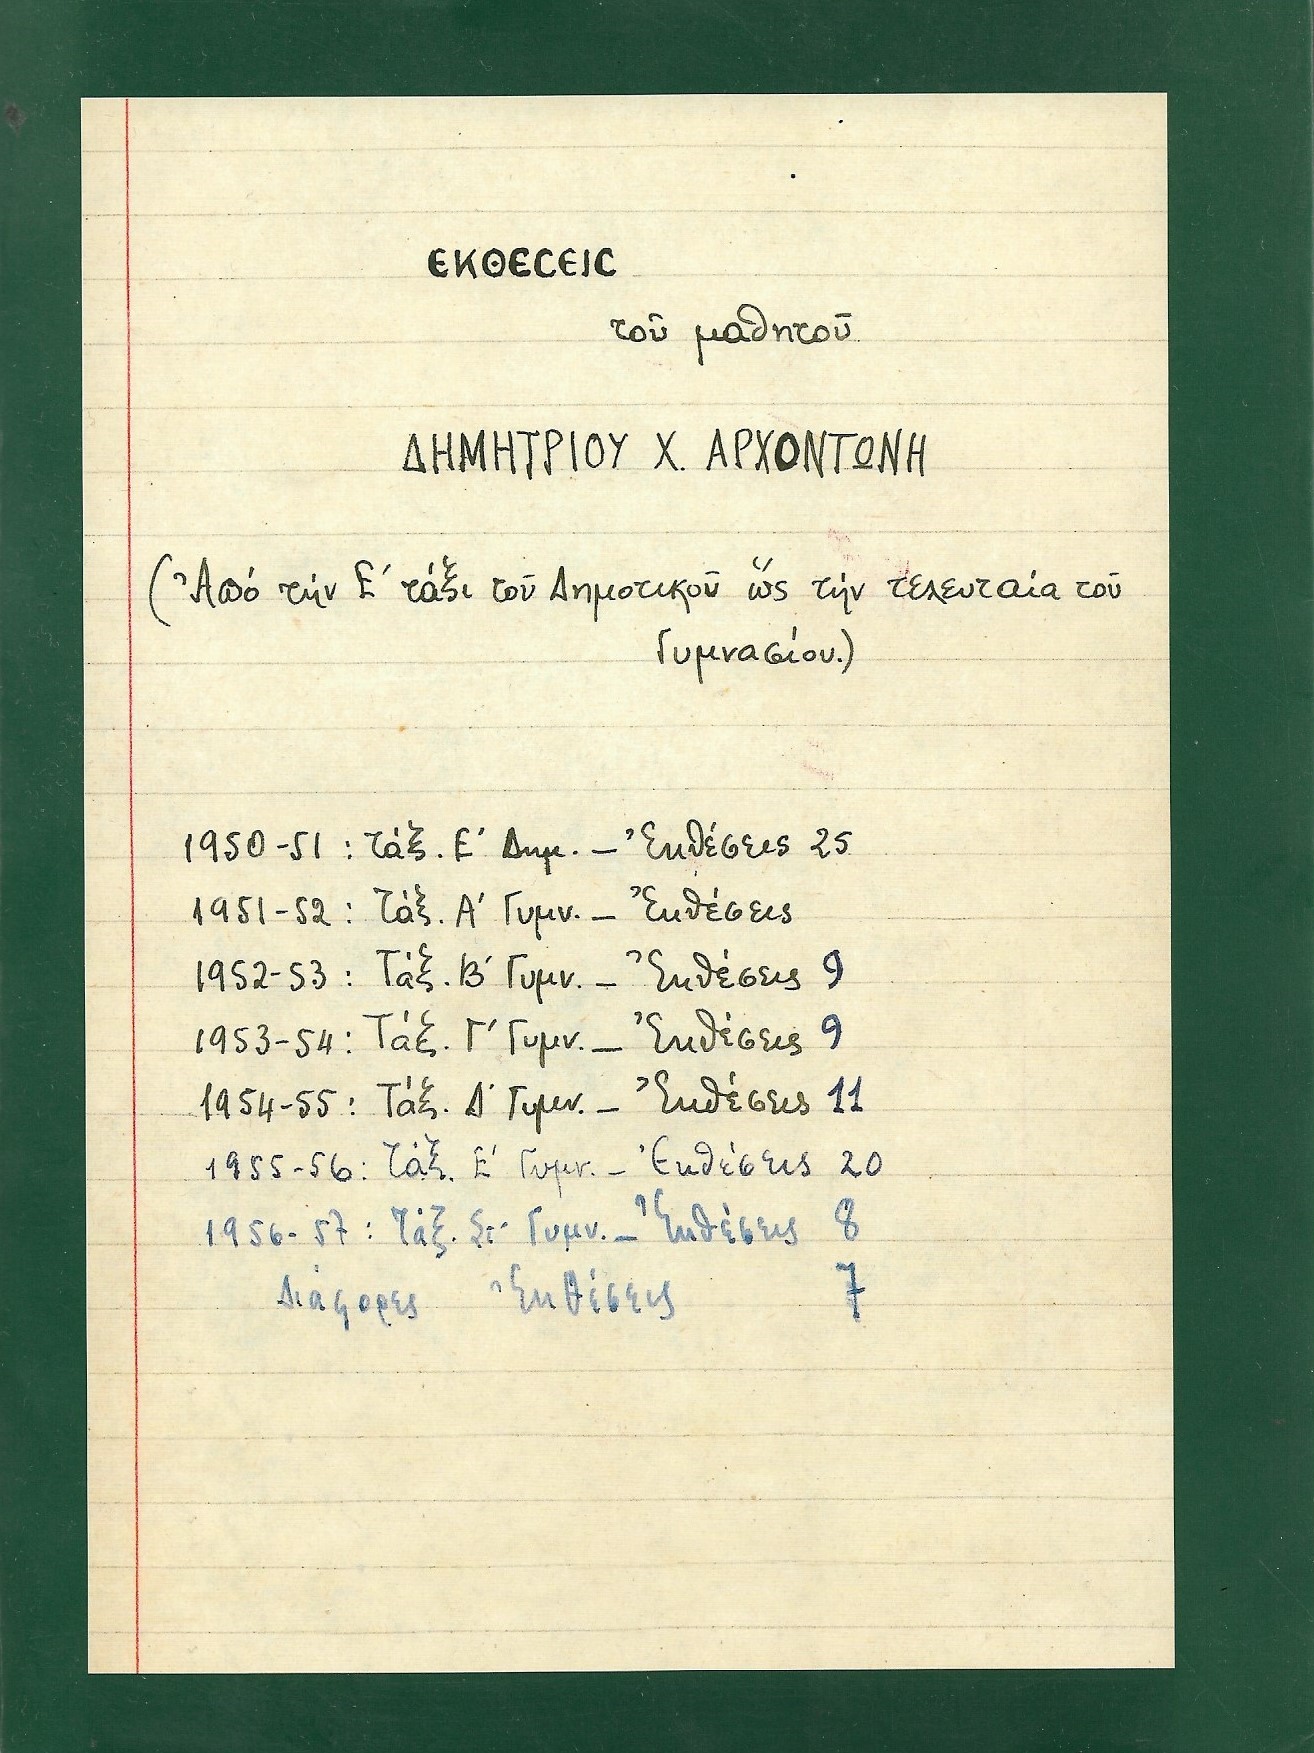 ΕΚΘΕϹΕΙϹ
τοῦ μαθητοῦ
ΔΗΜΗΤΡΙΟΥ Χ. ΑΡΧΟΝΤΩΝΗ
(Ἀπό τήν Ε΄ τάξι τοῦ Δημοτικοῦ ὥς τήν τελευταία τοῦ
Γυμνασίου.)
1950-51 : τάξ. Ε΄ Δημ. – Ἐκθέσεις 25
1951-52 : Τάξ. Α΄ Γυμν. – Ἐκθέσεις
1952-53 : Τάξ. Β΄ Γυμν. – Ἐκθέσεις 9
1953-54 : Τάξ. Γ΄ Γυμν. – Ἐκθέσεις 9
1954-55 : Τάξ. Δ΄ Γυμν. – Ἐκθέσεις 11
1955-56 : Τάξ. Ε΄ Γυμν. – Ἐκθέσεις 20
1956-57 : Τάξ. Στ΄ Γυμν. – Ἐκθέσεις 8
Διάφορες Ἐκθέσεις 7